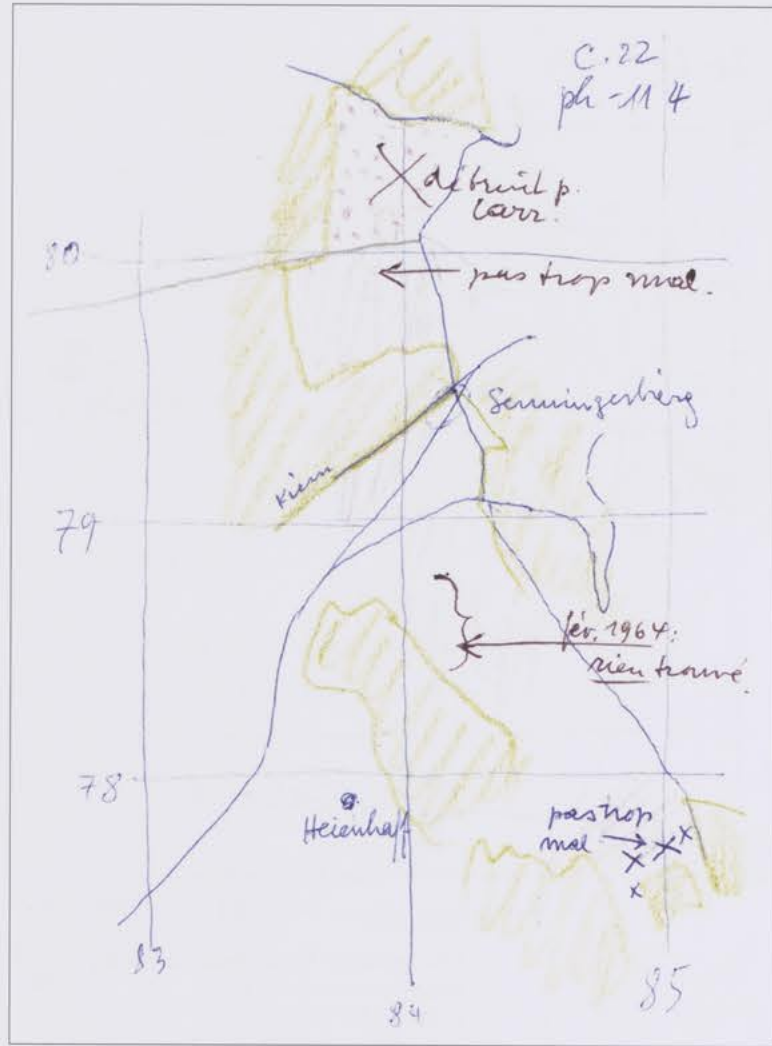 C.22
ph - 114
détruit p.
carr.
80
← pas trop mal.
Senningerbierg
Kiem
79
fév. 1964:
rien trouvé.
78
Heienhaff
pas trop
mal →
83
84
85